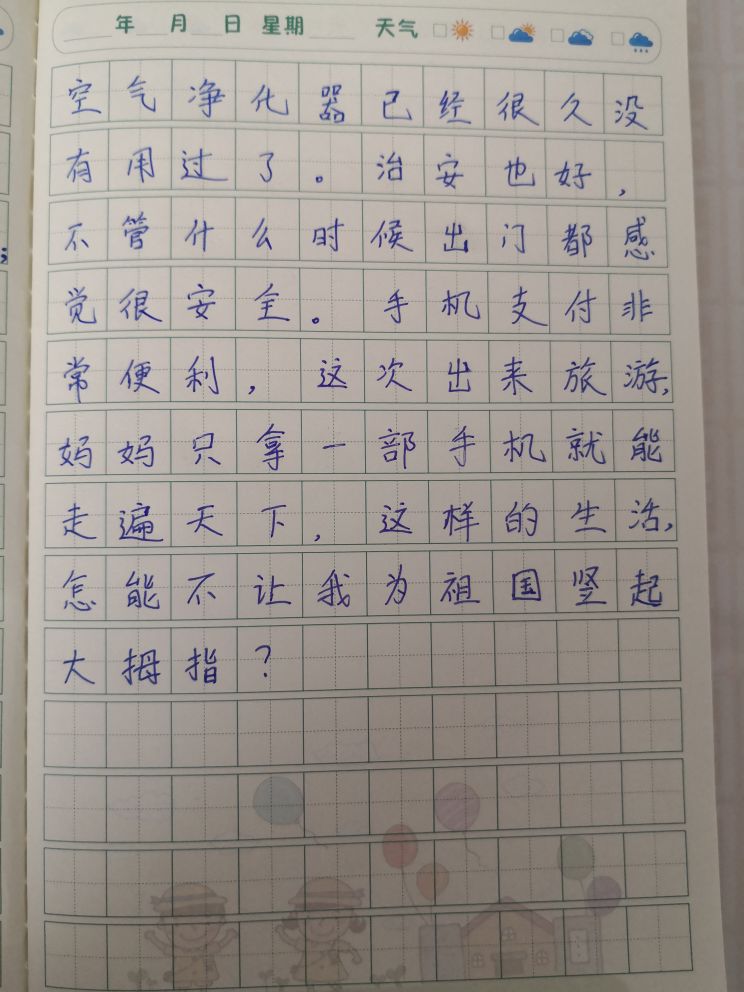 年 月 日 星期 天气
空气净化器已经很久没
有用过了。治安也好，
不管什么时候出门都感
觉很安全。手机支付非
常便利，这次出来旅游，
妈妈只拿一部手机就能
走遍天下，这样的生活，
怎能不让我为祖国竖起
大拇指？
；